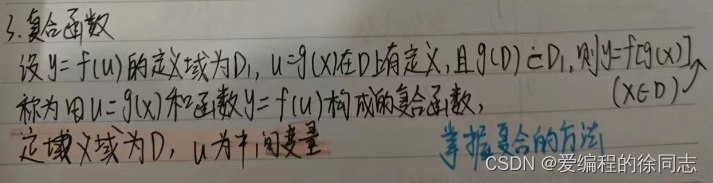 3.复合函数
设y=f(u)的定义域为D₁, u=g(x)在D上有定义,且g(D)⊂D₁,则y=f[g(x)]
称为由u=g(x)和函数y=f(u)构成的复合函数, (x∈D)
定义域为D, u为中间变量 掌握复合的方法
CSDN @爱编程的徐同志